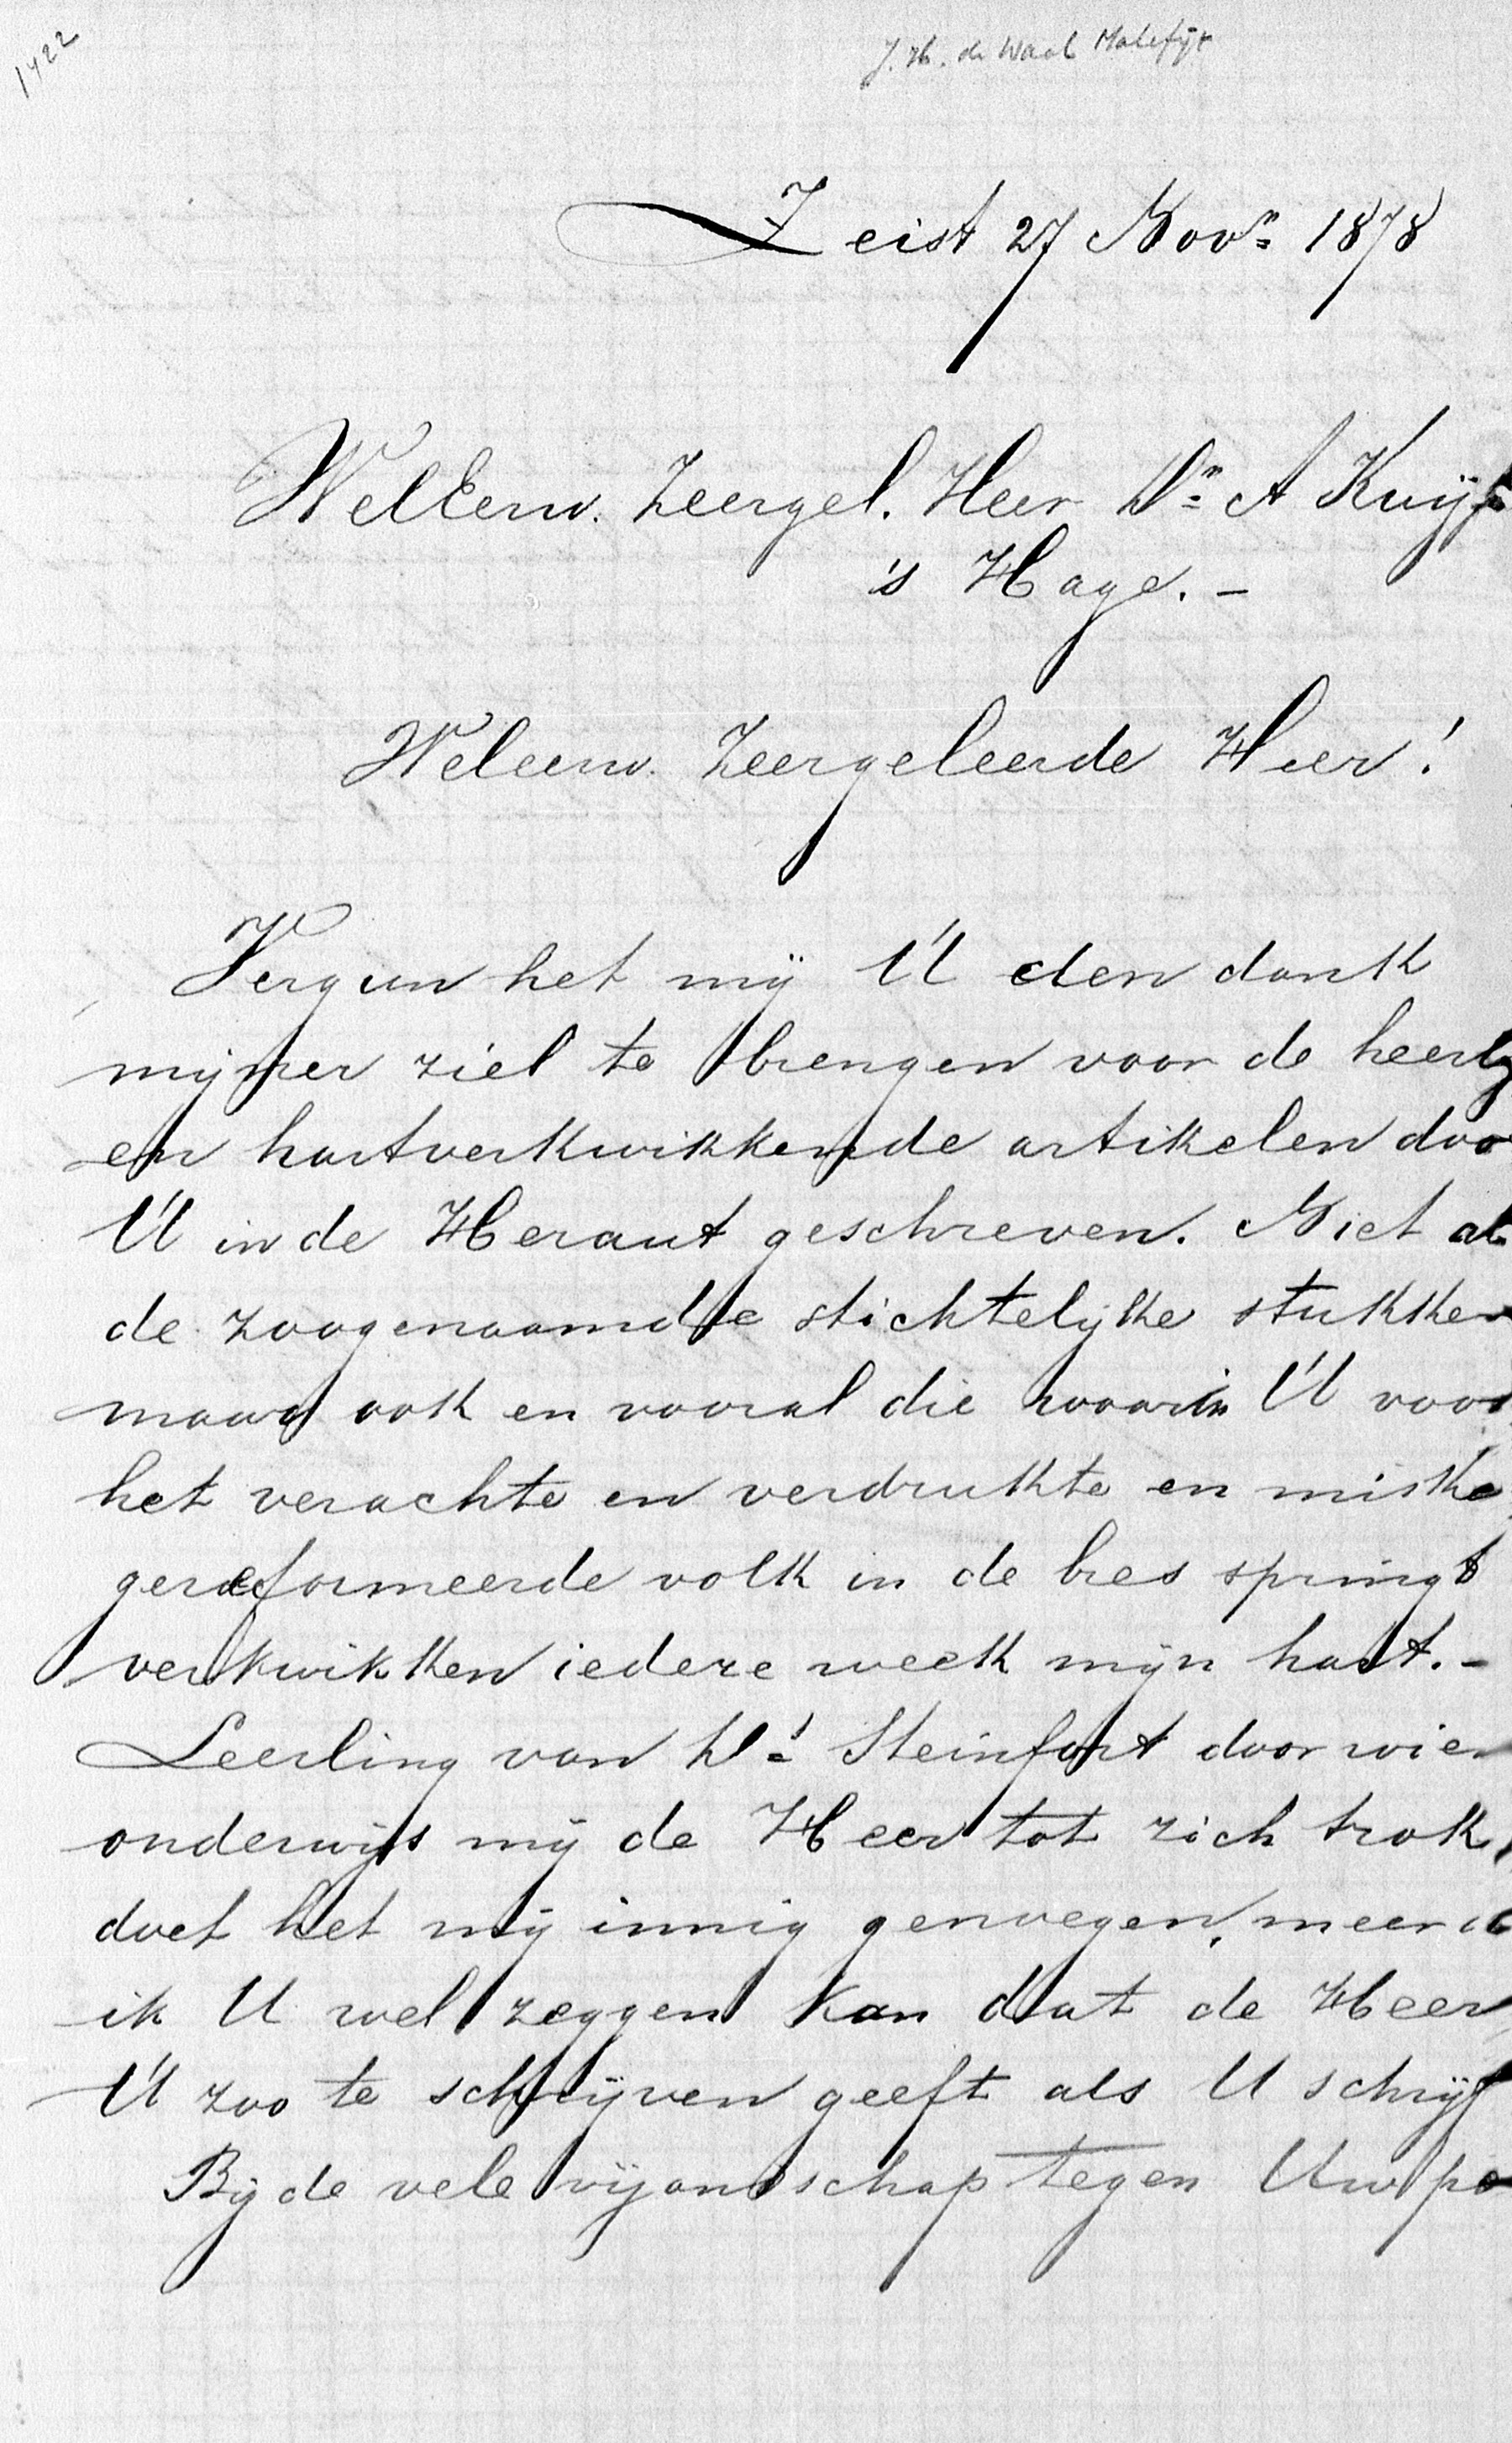 1422
J. H. de Waal Malefijt
Zeist 27 Nov. 1878
WelEerw. Zeergel. Heer Dr A Kuyp
's Hage. –
Weleerw. Zeergeleerde Heer!
Vergun het mij U den dank
mijner ziel te brengen voor de heerlij
en hartverkwikkende artikelen doo
U in de Heraut geschreven. Niet al
de zoogenaamde stichtelijke stukken
maar ook en vooral die waarin U voor
het verachte en verdrukte en miske
gereformeerde volk in de bres springt
verkwikken iedere week mijn hart. –
Leerling van Ds Steinfort door wien
onderwijs mij de Heer tot zich trok,
doet het mij innig genoegen, meer d
ik U wel zeggen kan dat de Heer
U zoo te schrijven geeft als U schrijf
Bij de vele vijandschap tegen Uw pe